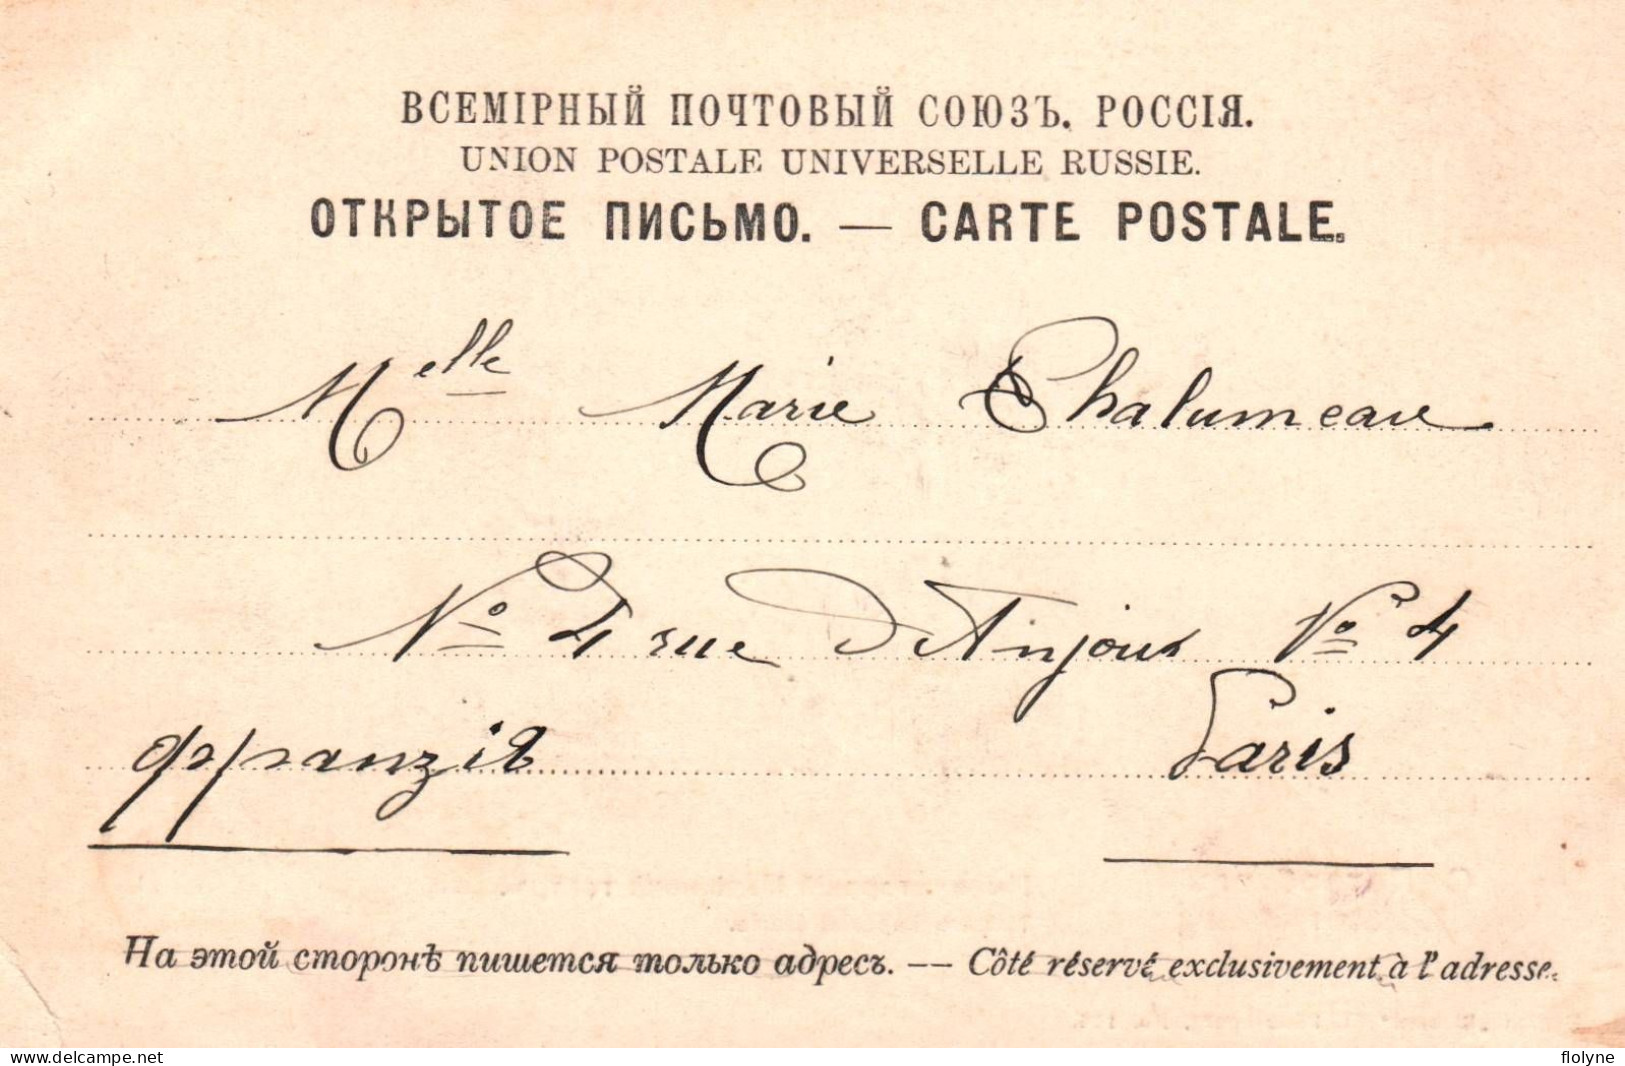 ВСЕМІРНЫЙ ПОЧТОВЫЙ СОЮЗЪ. РОССІЯ.
UNION POSTALE UNIVERSELLE RUSSIE.
ОТКРЫТОЕ ПИСЬМО. — CARTE POSTALE.
Melle Marie Chalumeau
No 4 rue D'Anjoux No 4
Paris
На этой сторонѣ пишется только адресъ. — Côté réservé exclusivement à l'adresse.
www.delcampe.net
flolyne